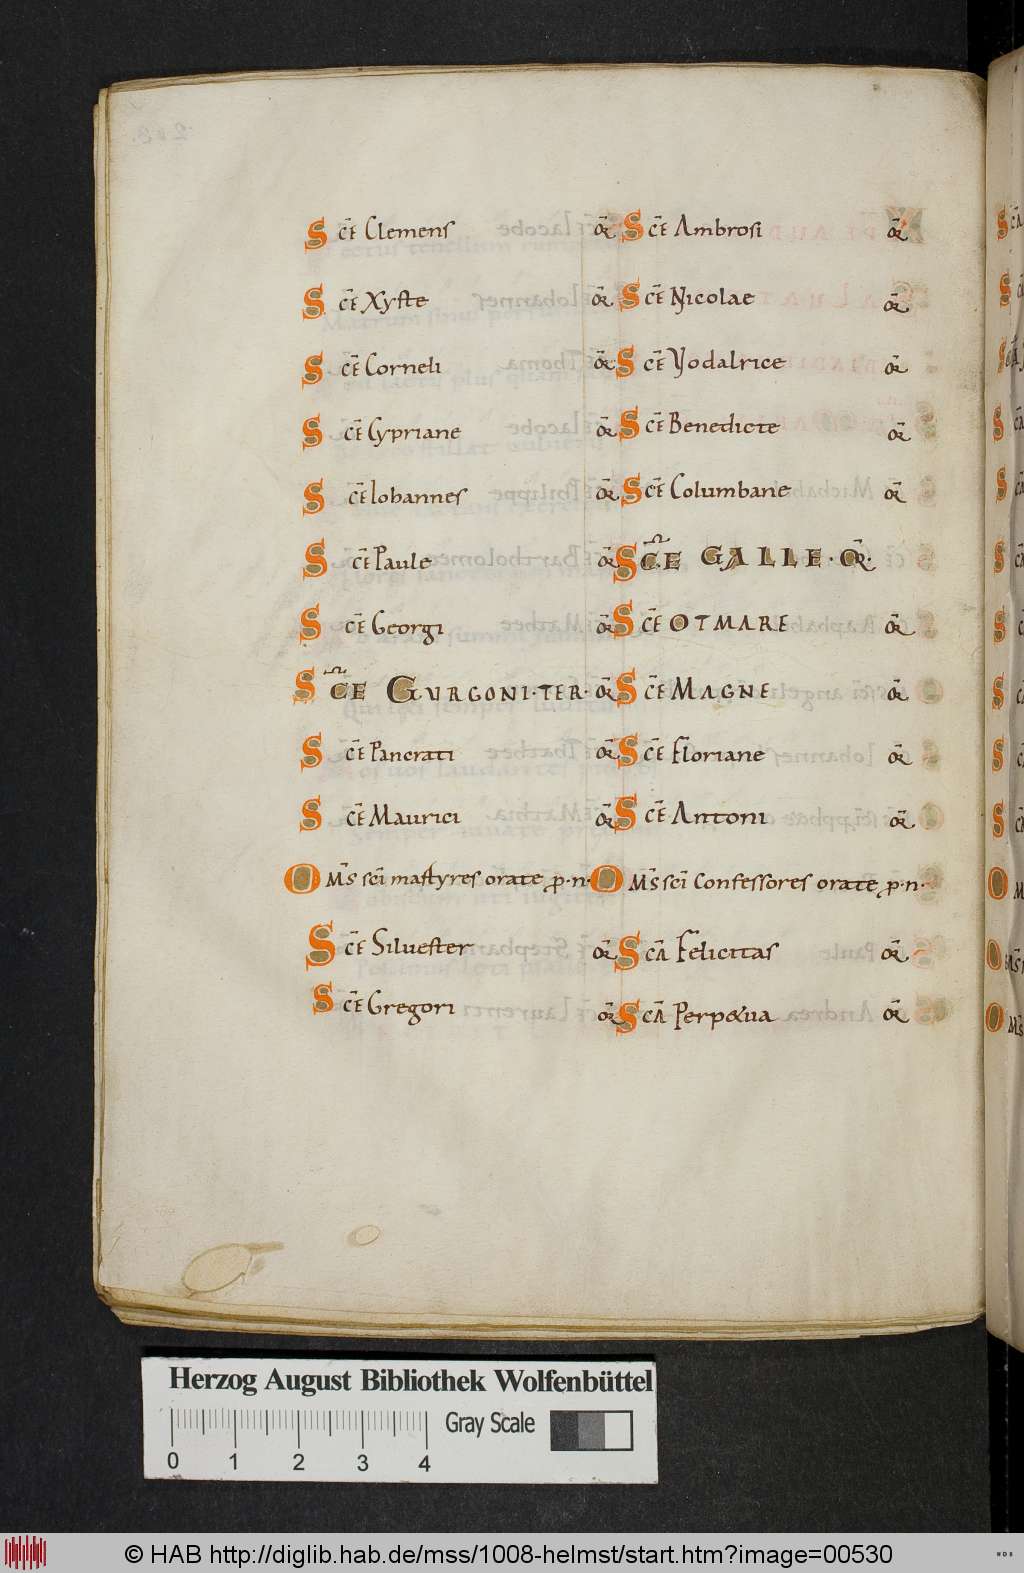 Scē Clemens or̄
Scē Xyste or̄
Scē Corneli or̄
Scē Cypriane or̄
Scē Iohannes or̄
Scē Paule or̄
Scē Georgi or̄
Scē GVRGONI·TER· or̄
Scē Pancrati or̄
Scē Maurici or̄
Oms̄ sci martyres orate p·n·
Scē Siluester or̄
Scē Gregori or̄
Scē Ambrosi or̄
Scē Nicolae or̄
Scē Vodalrice or̄
Scē Benedicte or̄
Scē Columbane or̄
SCE GALLE·OR̄·
Scē OTMARE or̄
Scē MAGNE or̄
Scē Floriane or̄
Scē Antoni or̄
Oms̄ sci Confessores orate p·n·
Scā Felicitas or̄
Scā Perp&ua or̄
Herzog August Bibliothek Wolfenbüttel
Gray Scale
0 1 2 3 4
© HAB http://diglib.hab.de/mss/1008-helmst/start.htm?image=00530